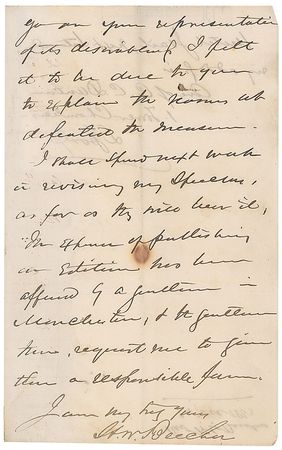 go on your representation
of its desirability. I felt
it to be due to you
to explain the reasons wh
defeated the measure.
I shall spend next week
in revising my Speeches,
as far as they will bear it,
The expense of publishing
an Edition has been
assumed by a gentleman in
Manchester, & the gentlemen
here, request me to give
them a responsible form.
I am very truly yours
H. W. Beecher